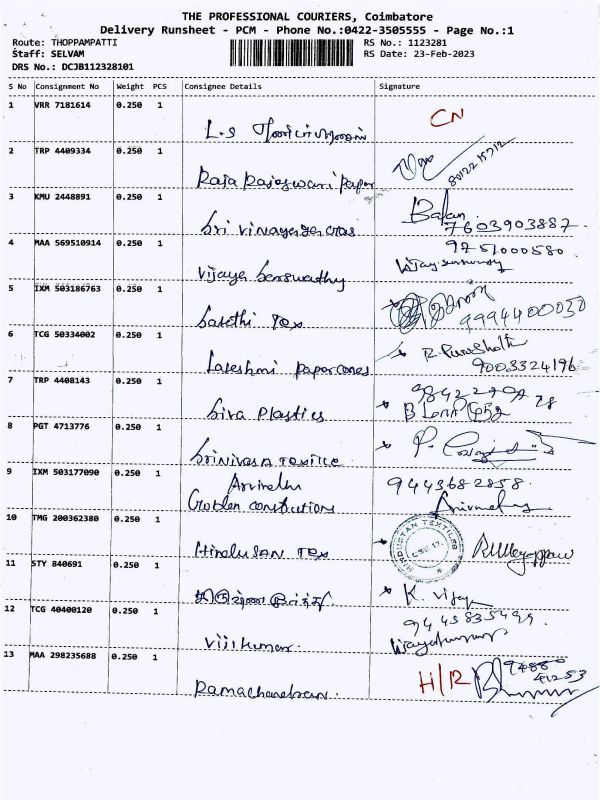 THE PROFESSIONAL COURIERS, Coimbatore
Delivery Runsheet - PCM - Phone No.:0422-3505555 - Page No.:1
Route: THOPPAMPATTI RS No.: 1123281
Staff: SELVAM RS Date: 23-Feb-2023
DRS No.: DCJB112328101
S No Consignment No Weight PCS Consignee Details Signature
1 VRR 7181614 0.250 1
CN
L.S
2 TRP 4409334 0.250 1
Raja Rajeswari paper
3 KMU 2448891 0.250 1
Balan
7603903887
Sri
4 MAA 569510914 0.250 1
9751000580
Vijaya Saraswathy
5 IXM 503186763 0.250 1
9994400030
Sakthi Tex
6 TCG 50334002 0.250 1
R. Purushoth
9003324196
Lakeshmi paper cones
7 TRP 4408143 0.250 1
Siva Plastics
8 PGT 4713776 0.250 1
Srinivasa Textile
9 IXM 503177090 0.250 1
9443682858
10 TMG 200362380 0.250 1
HINDUSTAN TEXTILES
HindusAN Tex
11 STY 840691 0.250 1
K. Vijay
12 TCG 40400120 0.250 1
9443835499
Vijikumar
13 MAA 298235688 0.250 1
H/R
94880
41253
Ramachandran